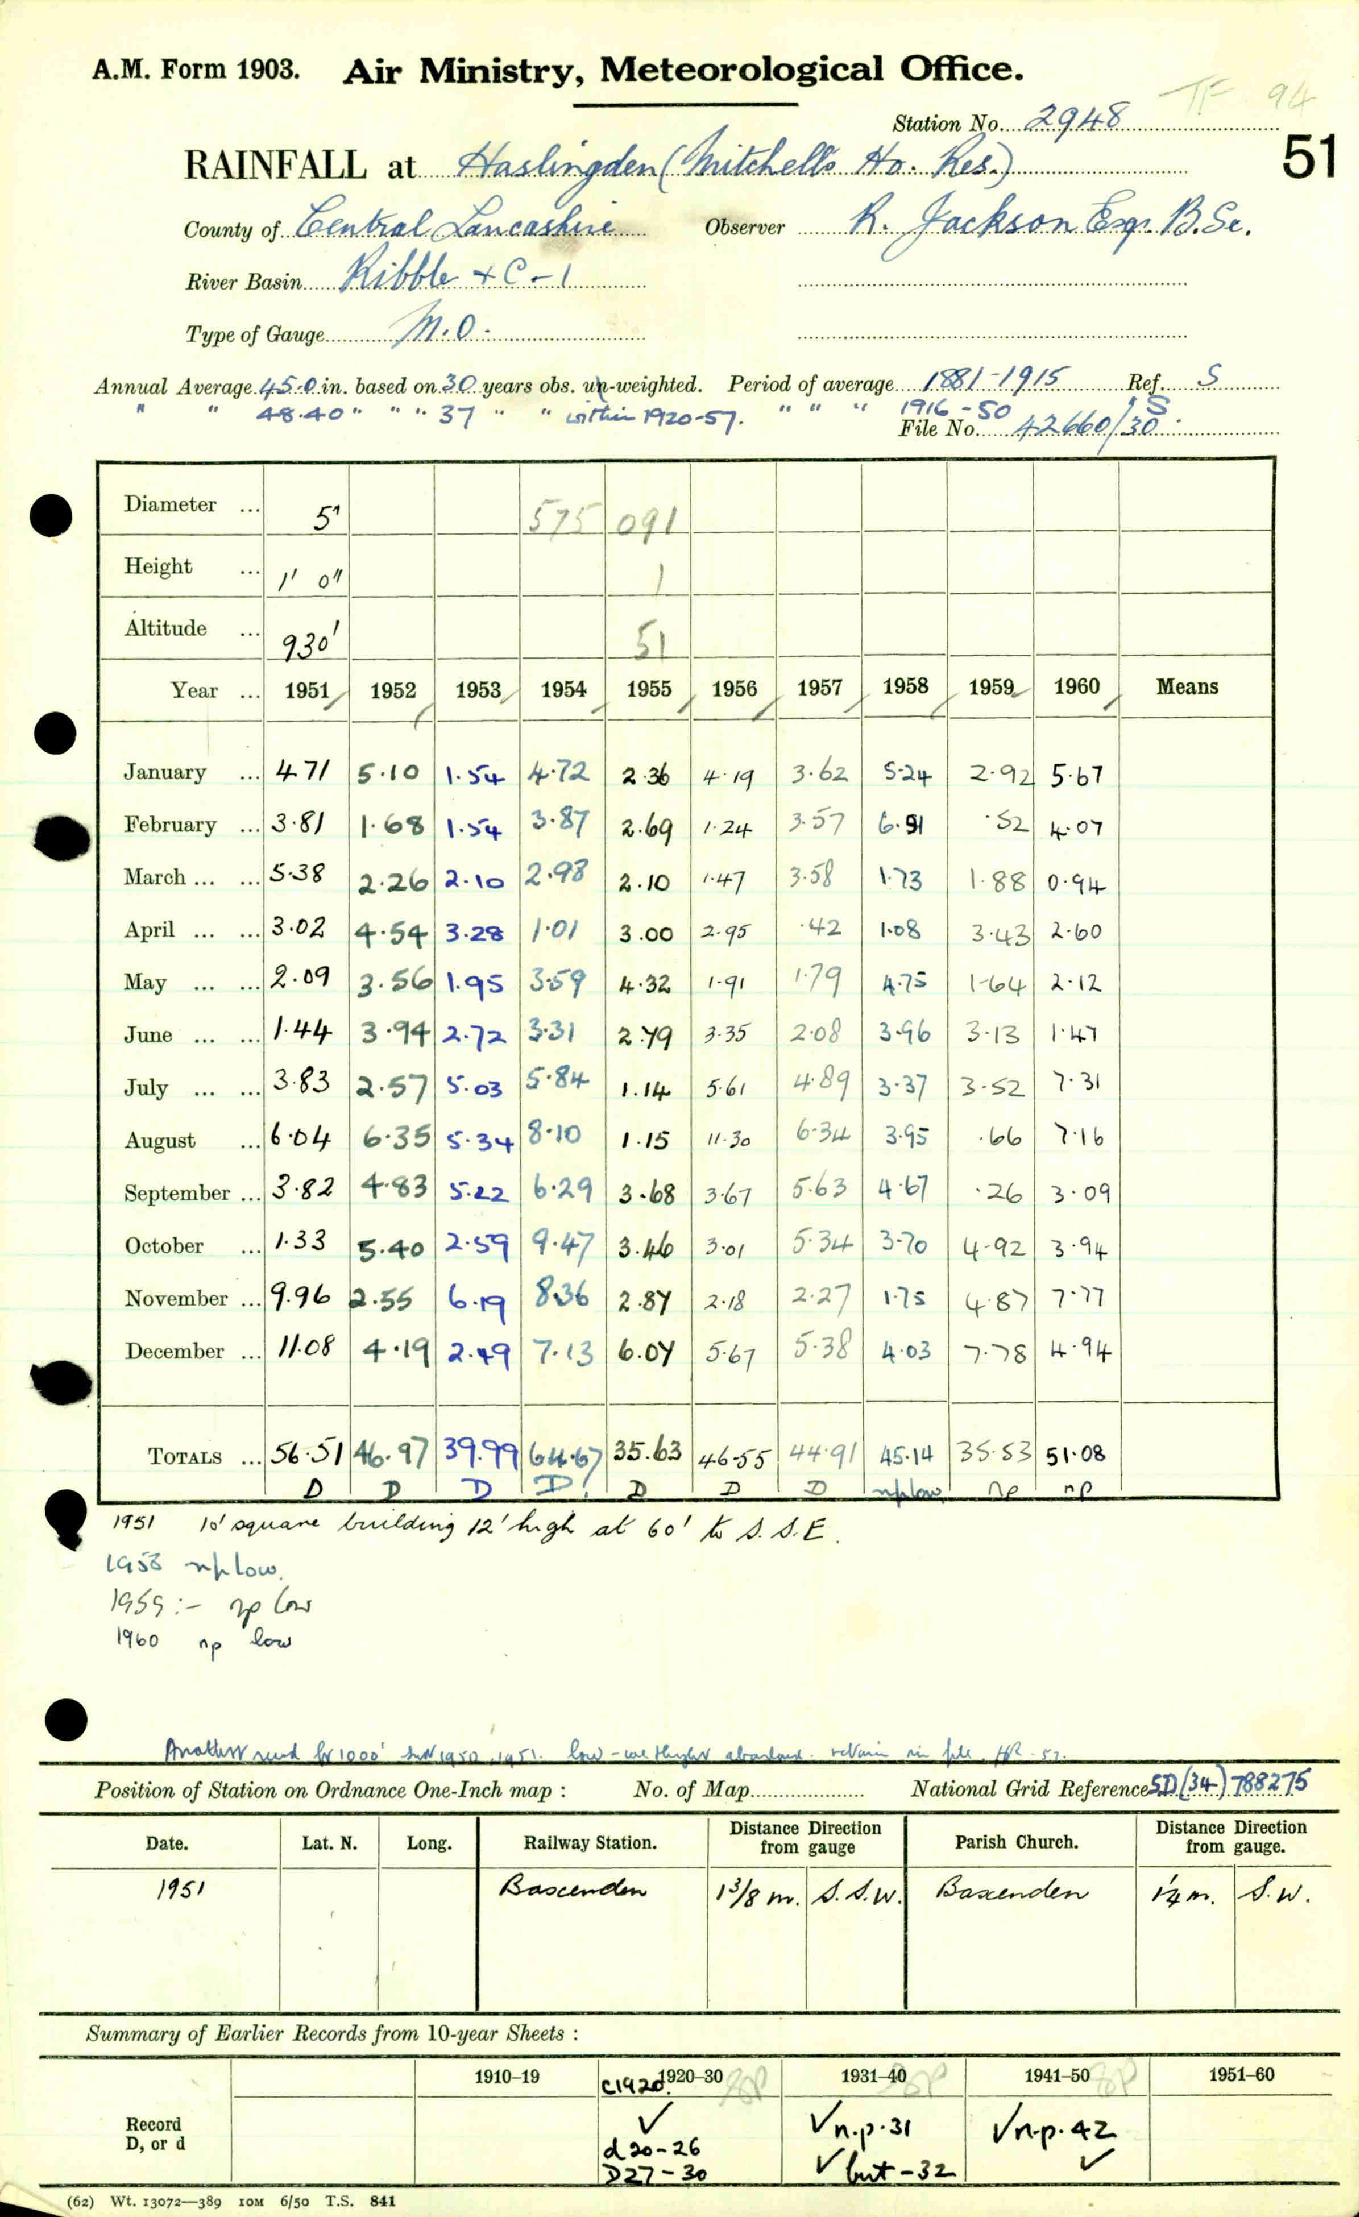 TF 94
A.M. Form 1903. Air Ministry, Meteorological Office.
Station No. 2948
51
RAINFALL at Haslingden (Mitchells Ho. Res.)
County of Central Lancashire Observer R. Jackson Esq. B.Sc.
River Basin Ribble + C-1
Type of Gauge M.O.
Annual Average 45.0 in. based on 30 years obs. un-weighted. Period of average 1881-1915 Ref. S
" " 48.40 " " " 37 " " within 1920-57. " " " 1916-50 S
File No. 42660/30
Diameter ... 5" 575 091
Height ... 1' 0" 1
Altitude ... 930' 51
Year ... 1951 1952 1953 1954 1955 1956 1957 1958 1959 1960 Means
January ... 4.71 5.10 1.54 4.72 2.36 4.19 3.62 5.24 2.92 5.67
February ... 3.81 1.68 1.54 3.87 2.69 1.24 3.57 6.91 .52 4.07
March ... ... 5.38 2.26 2.10 2.98 2.10 1.47 3.58 1.73 1.88 0.94
April ... ... 3.02 4.54 3.28 1.01 3.00 2.95 .42 1.08 3.43 2.60
May ... ... 2.09 3.56 1.95 3.59 4.32 1.91 1.79 4.75 1.64 2.12
June ... ... 1.44 3.94 2.72 3.31 2.79 3.35 2.08 3.96 3.13 1.47
July ... ... 3.83 2.57 5.03 5.84 1.14 5.61 4.89 3.37 3.52 7.31
August ... 6.04 6.35 5.34 8.10 1.15 11.30 6.34 3.95 .66 7.16
September ... 3.82 4.83 5.22 6.29 3.68 3.67 5.63 4.67 .26 3.09
October ... 1.33 5.40 2.59 9.47 3.46 3.01 5.34 3.70 4.92 3.94
November ... 9.96 2.55 6.19 8.36 2.87 2.18 2.27 1.75 4.87 7.77
December ... 11.08 4.19 2.49 7.13 6.07 5.67 5.38 4.03 7.78 4.94
TOTALS ... 56.51 46.97 39.99 64.67 35.63 46.55 44.91 45.14 35.53 51.08
D D D D! D D D np low np np
1951 10' square building 12' high at 60' to S.S.E.
1958 np low.
1959:- np low
1960 np low
Another record for 1000' 1950, 1951. low - retain in file. 57.
Position of Station on Ordnance One-Inch map : No. of Map National Grid Reference SD (34) 788275
Date. Lat. N. Long. Railway Station. Distance from gauge Direction Parish Church. Distance from gauge. Direction
1951 Baxenden 1 3/8 m. S.S.W. Baxenden 1/4 m. S.W.
Summary of Earlier Records from 10-year Sheets :
1910–19 c1920. 1920–30 1931–40 1941–50 1951–60
Record D, or d
✓ ✓ n.p. 31 ✓ n.p. 42
d 20-26 ✓ but -32 ✓
D 27-30
(62) Wt. 13072—389 10M 6/50 T.S. 841